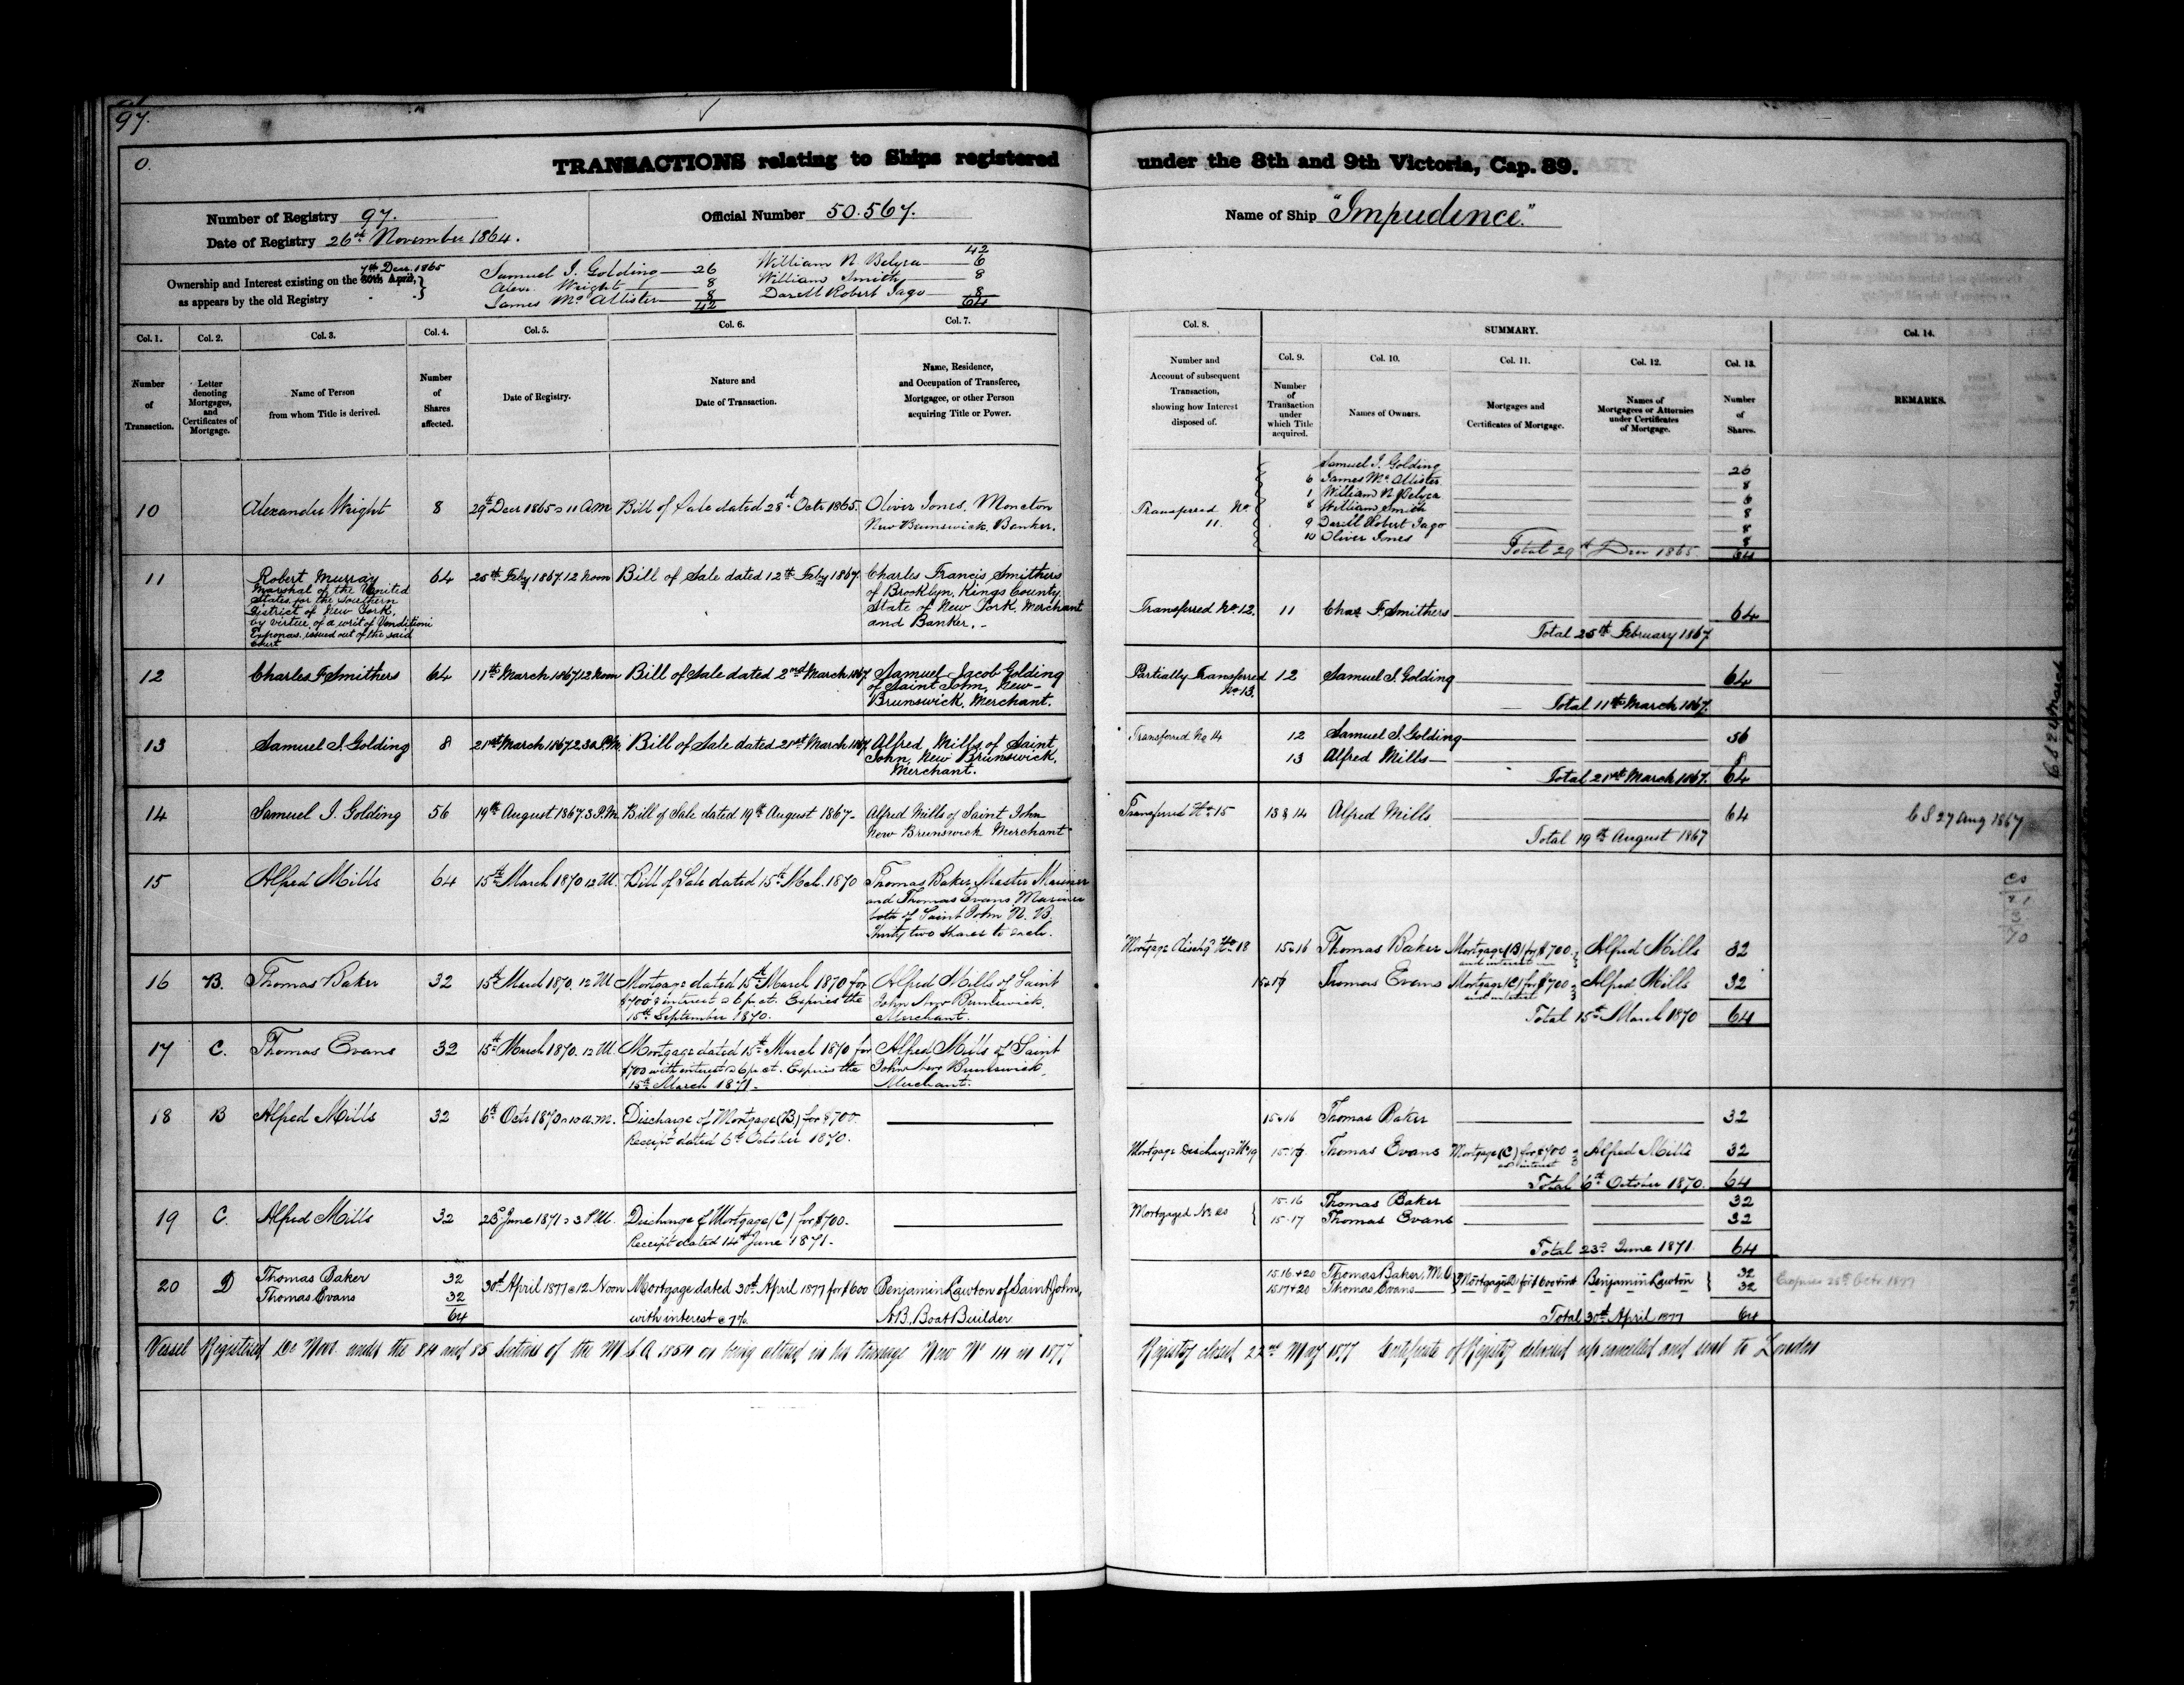 97.
0.
TRANSACTIONS relating to Ships registered under the 8th and 9th Victoria, Cap. 89.
Number of Registry 97.
Date of Registry 26th November 1864.
Official Number 50.567.
Name of Ship "Impudence."
Ownership and Interest existing on the 30th April, 7th Decr. 1865
as appears by the old Registry
Samuel J. Golding 26
Alexr. Wright 8
James Mc Allister 8
42
42
William N. Belyea 6
William Smith 8
Darell Robert Jago 8
64
Col. 1.
Number
of
Transaction.
Col. 2.
Letter
denoting
Mortgages,
and
Certificates of
Mortgage.
Col. 3.
Name of Person
from whom Title is derived.
Col. 4.
Number
of
Shares
affected.
Col. 5.
Date of Registry.
Col. 6.
Nature and
Date of Transaction.
Col. 7.
Name, Residence,
and Occupation of Transferee,
Mortgagee, or other Person
acquiring Title or Power.
Col. 8.
Number and
Account of subsequent
Transaction,
showing how Interest
disposed of.
SUMMARY.
Col. 9.
Number
of
Transaction
under
which Title
acquired.
Col. 10.
Names of Owners.
Col. 11.
Mortgages and
Certificates of Mortgage.
Col. 12.
Names of
Mortgagees or Attornies
under Certificates
of Mortgage.
Col. 13.
Number
of
Shares.
Col. 14.
REMARKS.
10
Alexander Wright
8
29th Decr 1865 @ 11 AM
Bill of Sale dated 28st Octr 1865.
Oliver Jones, Moncton
New Brunswick, Banker.
Transferred No
11.
Samuel J. Golding 26
6 James Mc Allister 8
1 William N. Belyea 6
8 William Smith 8
9 Darell Robert Jago 8
10 Oliver Jones 8
Total 29th Decr 1865. 64
11
Robert Murray
Marshal of the United
States for the Southern
District of New York,
by virtue of a writ of Venditioni
Exponas, issued out of the said
Court
64
25th Feby 1867. 12 Noon
Bill of Sale dated 12th Feby 1867.
Charles Francis Smithers
of Brooklyn, Kings County,
State of New York, Merchant
and Banker.
Transferred No. 12.
11 Chas F. Smithers 64
Total 25th February 1867
12
Charles F. Smithers
64
11th March 1867. 12 Noon
Bill of Sale dated 2nd March 1867.
Samuel Jacob Golding
of Saint John, New-
Brunswick, Merchant.
Partially Transferred
No. 13.
12 Samuel J. Golding 64
Total 11th March 1867.
13
Samuel J. Golding
8
21st March 1867. 2.30 P.M.
Bill of Sale dated 21st March 1867.
Alfred Mills of Saint
John, New Brunswick,
Merchant.
Transferred No 14
12 Samuel J. Golding 56
13 Alfred Mills 8
Total 21st March 1867. 64
14
Samuel J. Golding
56
19th August 1867. 3 P.M.
Bill of Sale dated 19th August 1867-
Alfred Mills of Saint John
New Brunswick Merchant
Transferred No 15
13 & 14 Alfred Mills 64
Total 19th August 1867
C S 27 Aug 1867
15
Alfred Mills
64
15th March 1870 12 M.
Bill of Sale dated 15th Mch. 1870
Thomas Baker, Master Mariner
and Thomas Evans, Mariner
both of Saint John N. B.
Thirty two shares to each.
CS
21
3
70
16
B.
Thomas Baker
32
15th March 1870. 12 M.
Mortgage dated 15th March 1870 for
$700 & interest @ 6 pr ct. Expires the
15th September 1870.
Alfred Mills of Saint
John New Brunswick,
Merchant.
Mortgage dischgd No 18
15 & 16 Thomas Baker Mortgage (B) for $700. and interest Alfred Mills 32
15 & 17 Thomas Evans Mortgage (C) for $700 and interest Alfred Mills 32
Total 15th March 1870 64
17
C.
Thomas Evans
32
15th March 1870. 12 M.
Mortgage dated 15th March 1870 for
$700 with interest @ 6 pr ct. Expires the
15th March 1871.
Alfred Mills of Saint
John New Brunswick,
Merchant.
18
B
Alfred Mills
32
6th Octr 1870 @ 10 a.m.
Discharge of Mortgage (B) for $700.
Receipt dated 6th October 1870.
15 & 16 Thomas Baker 32
Mortgage Discharged No 19
15.17 Thomas Evans Mortgage (C) for $700 & interest Alfred Mills 32
Total 6th October 1870. 64
19
C.
Alfred Mills
32
23d June 1871 @ 3 P.M.
Discharge of Mortgage (C) for $700.
Receipt dated 14th June 1871.
Mortgaged No 20
15.16 Thomas Baker 32
15.17 Thomas Evans 32
Total 23d June 1871. 64
20
D
Thomas Baker 32
Thomas Evans 32
64
30th April 1877 @ 12 Noon
Mortgage dated 30th April 1877 for $600
with interest @ 7%
Benjamin Lawton of Saint John,
N.B., Boat Builder
15.16 & 20 Thomas Baker, M.O. 32
15.17 & 20 Thomas Evans 32
Mortgage D for $600 & int Benjamin Lawton
Total 30th April 1877 64
Expires 28th Octr. 1877
Vessel Registered De Novo under the 84 and 85 Sections of the M S A 1854 on being altered in her tonnage New No 14 in 1877
Registry closed 22nd May 1877 Certificate of Registry delivered up cancelled and sent to London